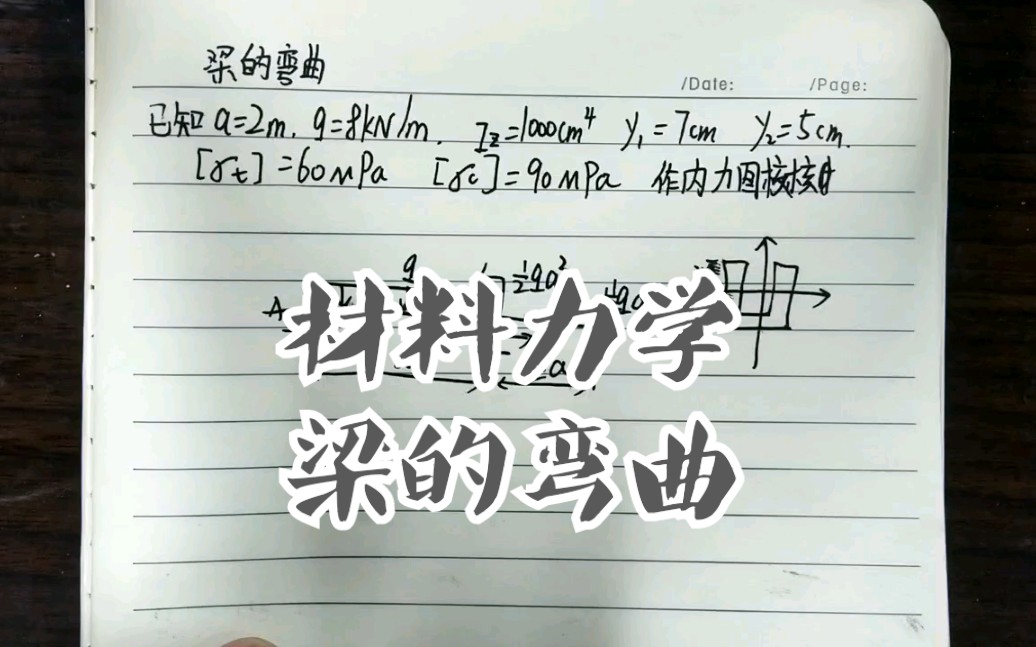 梁的弯曲
/Date: /Page:
已知 a=2m, q=8kN/m. Iz=1000cm⁴ y₁=7cm y₂=5cm.
[σt]=60MPa [σc]=90MPa 作内力图校核
q ½qa²
A
a
材料力学
梁的弯曲